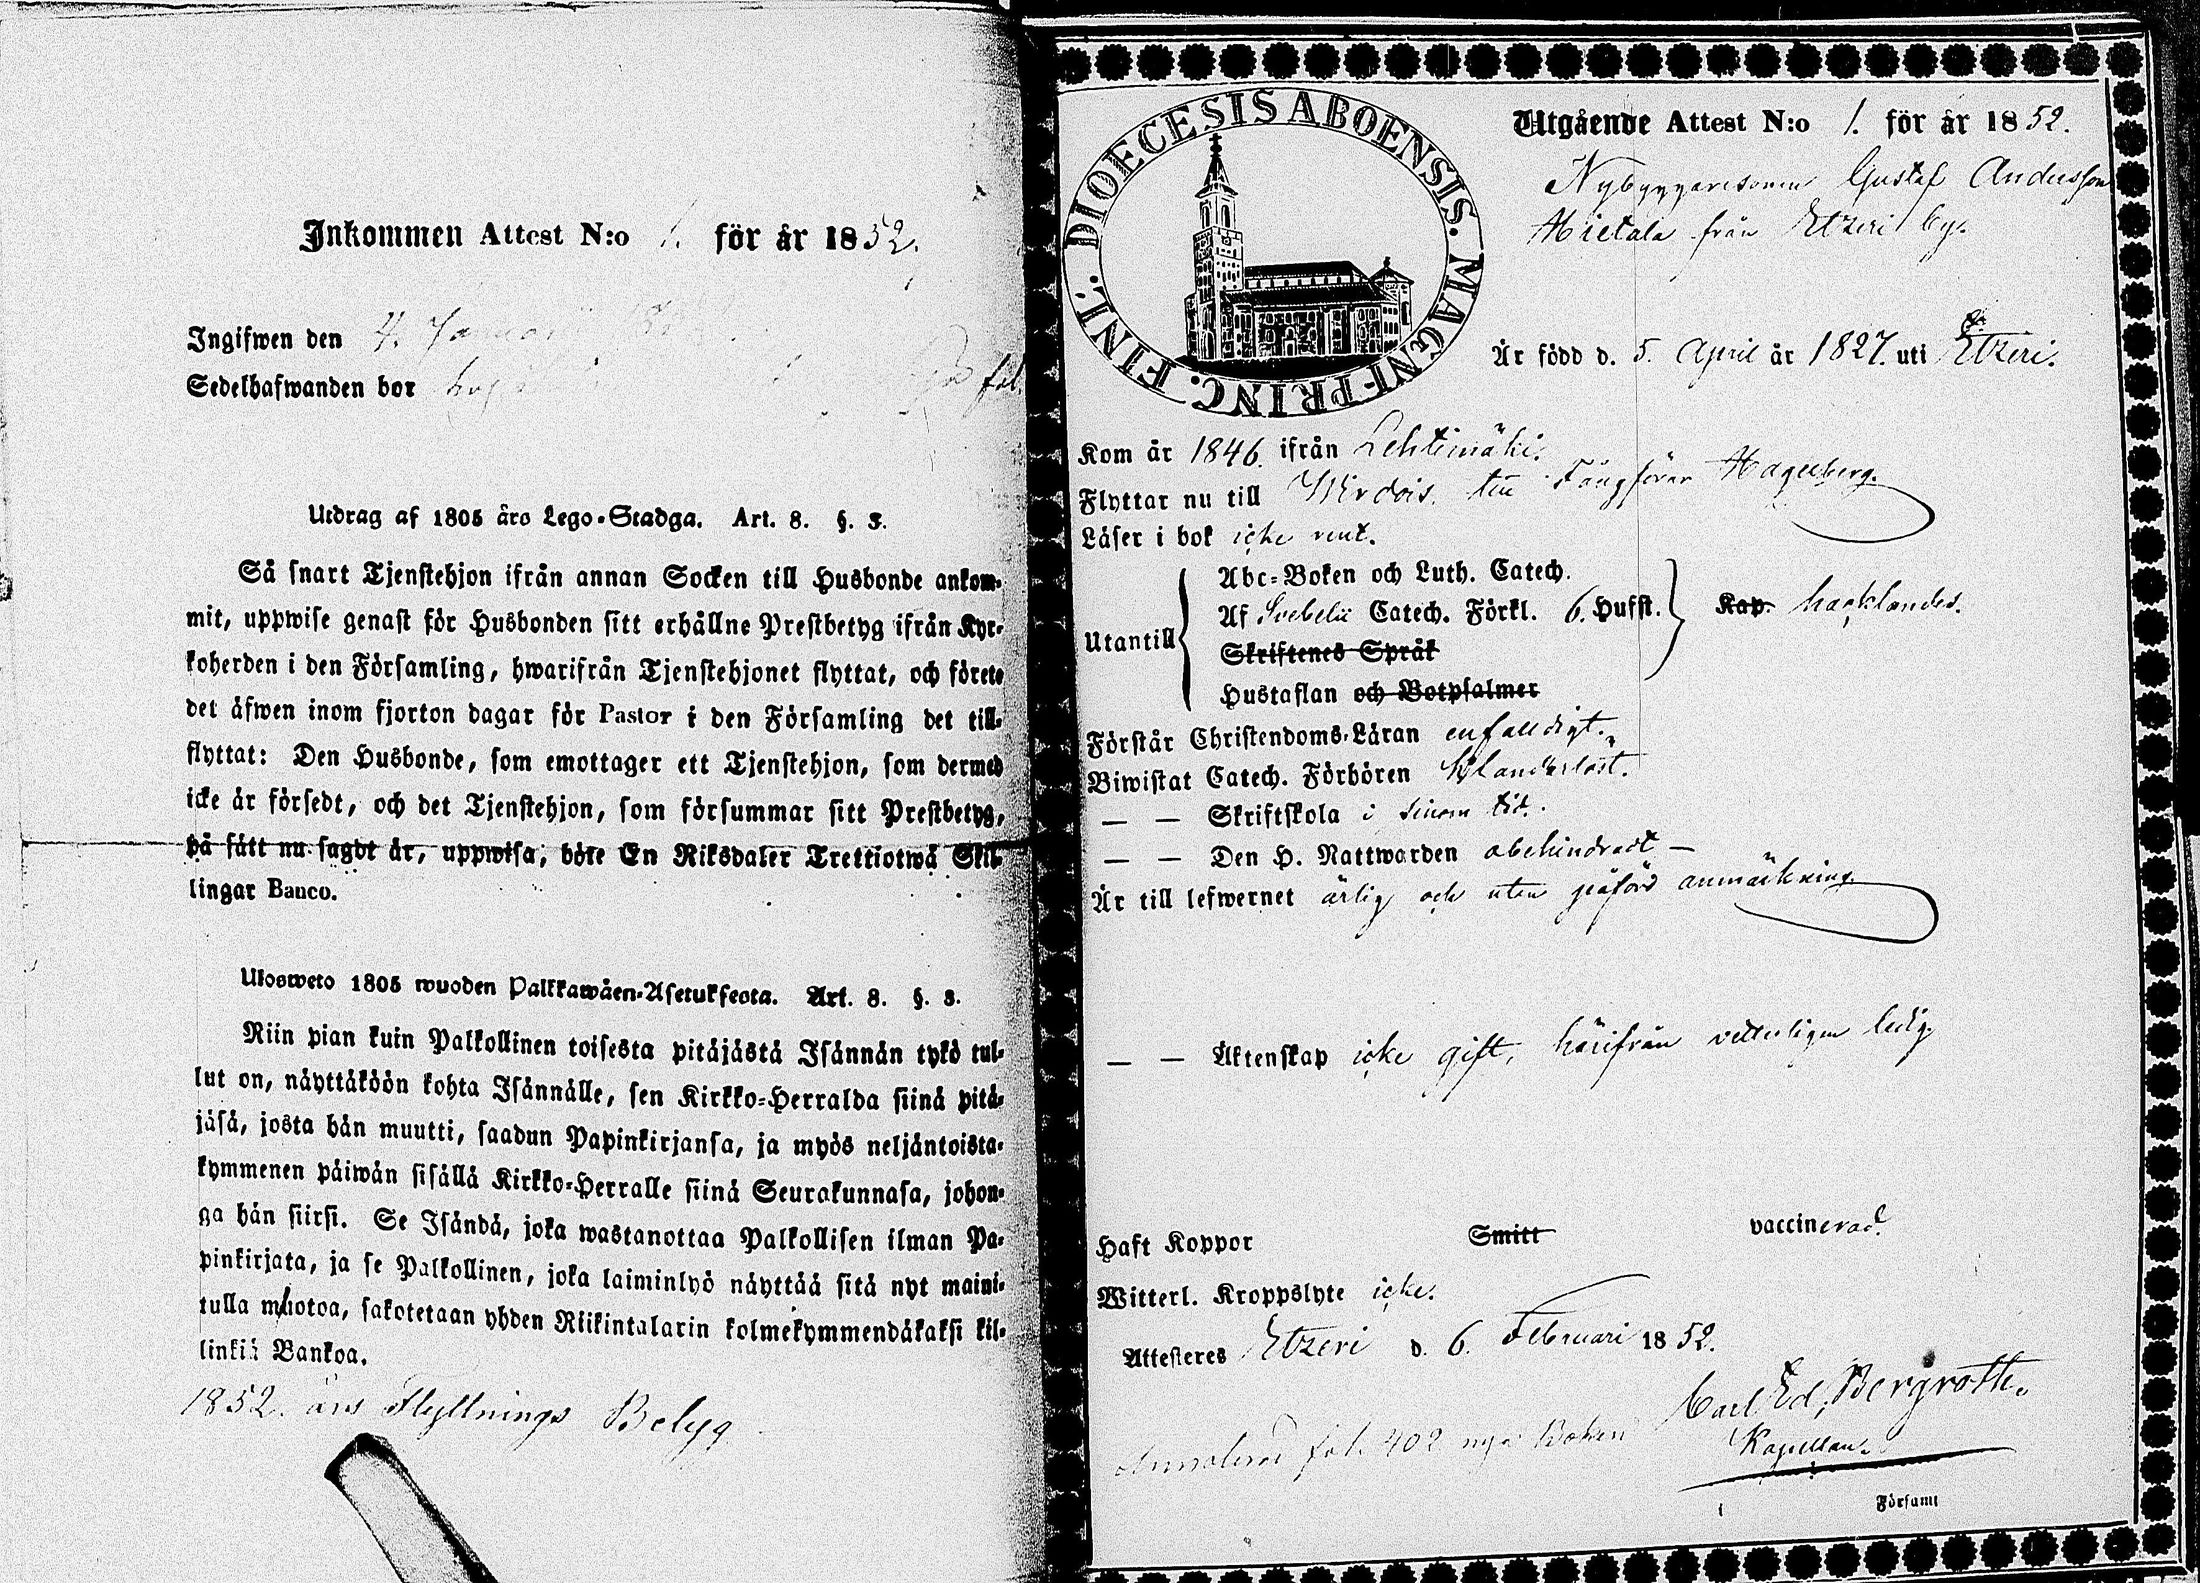 Inkommen Attest N:o 1. för år 1852.
Ingifwen den 4. Januari
Sedelhafwanden bor
fol.
Utdrag af 1805 års Lego-Stadga. Art. 8. §. 3.
Så snart Tjenstehjon ifrån annan Socken till Husbonde ankom-
mit, uppwise genast för Husbonden sitt erhållne Prestbetyg ifrån Kyr-
koherden i den Församling, hwarifrån Tjenstehjonet flyttat, och förete
det äfwen inom fjorton dagar för Pastor i den Församling det till-
flyttat: Den Husbonde, som emottager ett Tjenstehjon, som dermed
icke är försedt, och det Tjenstehjon, som försummar sitt Prestbetyg,
på sätt nu sagdt är, uppwisa, böte En Riksdaler Trettiotwå Skil-
lingar Banco.
Ulosweto 1805 wuoden Palkkawäen-Asetuksesta. Art. 8. §. 3.
Niin pian kuin Palkollinen toisesta pitäjästä Isännän tykö tul-
lut on, näyttäköön kohta Isännälle, sen Kirkko-Herralda siinä pitä-
jäsä, josta hän muutti, saadun Papinkirjansa, ja myös neljäntoista-
kymmenen päiwän sisällä Kirkko-Herralle siinä Seurakunnasa, johon-
ga hän siirsi. Se Isändä, joka wastanottaa Palkollisen ilman Pa-
pinkirjata, ja se Palkollinen, joka laiminlyö näyttää sitä nyt maini-
tulla muotoa, sakotetaan yhden Riikintalarin kolmekymmendäkaksi kil-
linkiä Bankoa.
1852. års Flyttnings Betyg
DIOECESIS ABOENSIS. MAGNI PRINC. FINL.
Utgående Attest N:o 1. för år 1852.
Nybyggaresonen Gustaf Andersson
Mietala från Etzeri by.
Är född d. 5. April år 1827. uti Etzeri.
Kom år 1846. ifrån Lehtimäki.
Flyttar nu till Wirdois, till Fångförar Hagelberg.
Läser i bok icke rent.
Utantill
Abc-Boken och Luth. Catech.
Af Svebelii Catech. Förkl. 6. Hufst. Kap. hacklandes.
Skriftenes Språk
Hustaflan och Botpsalmer
Förstår Christendoms-Läran enfalldigt.
Biwistat Catech. Förhören klanderlöst.
— — Skriftskola i sinom tid.
— — Den H. Nattwarden obehindradt —
Är till lefwernet ärlig och utan påförd anmärkning.
— — Äktenskap icke gift, härifrån vetterligen ledig.
Haft Koppor Smitt vaccinerad.
Witterl. Kroppslyte icke.
Attesteres Etzeri d. 6. Februari 1852.
Carl Ed. Bergroth.
Kapellan.
Annoterad fol. 402 nya Boken
Församl